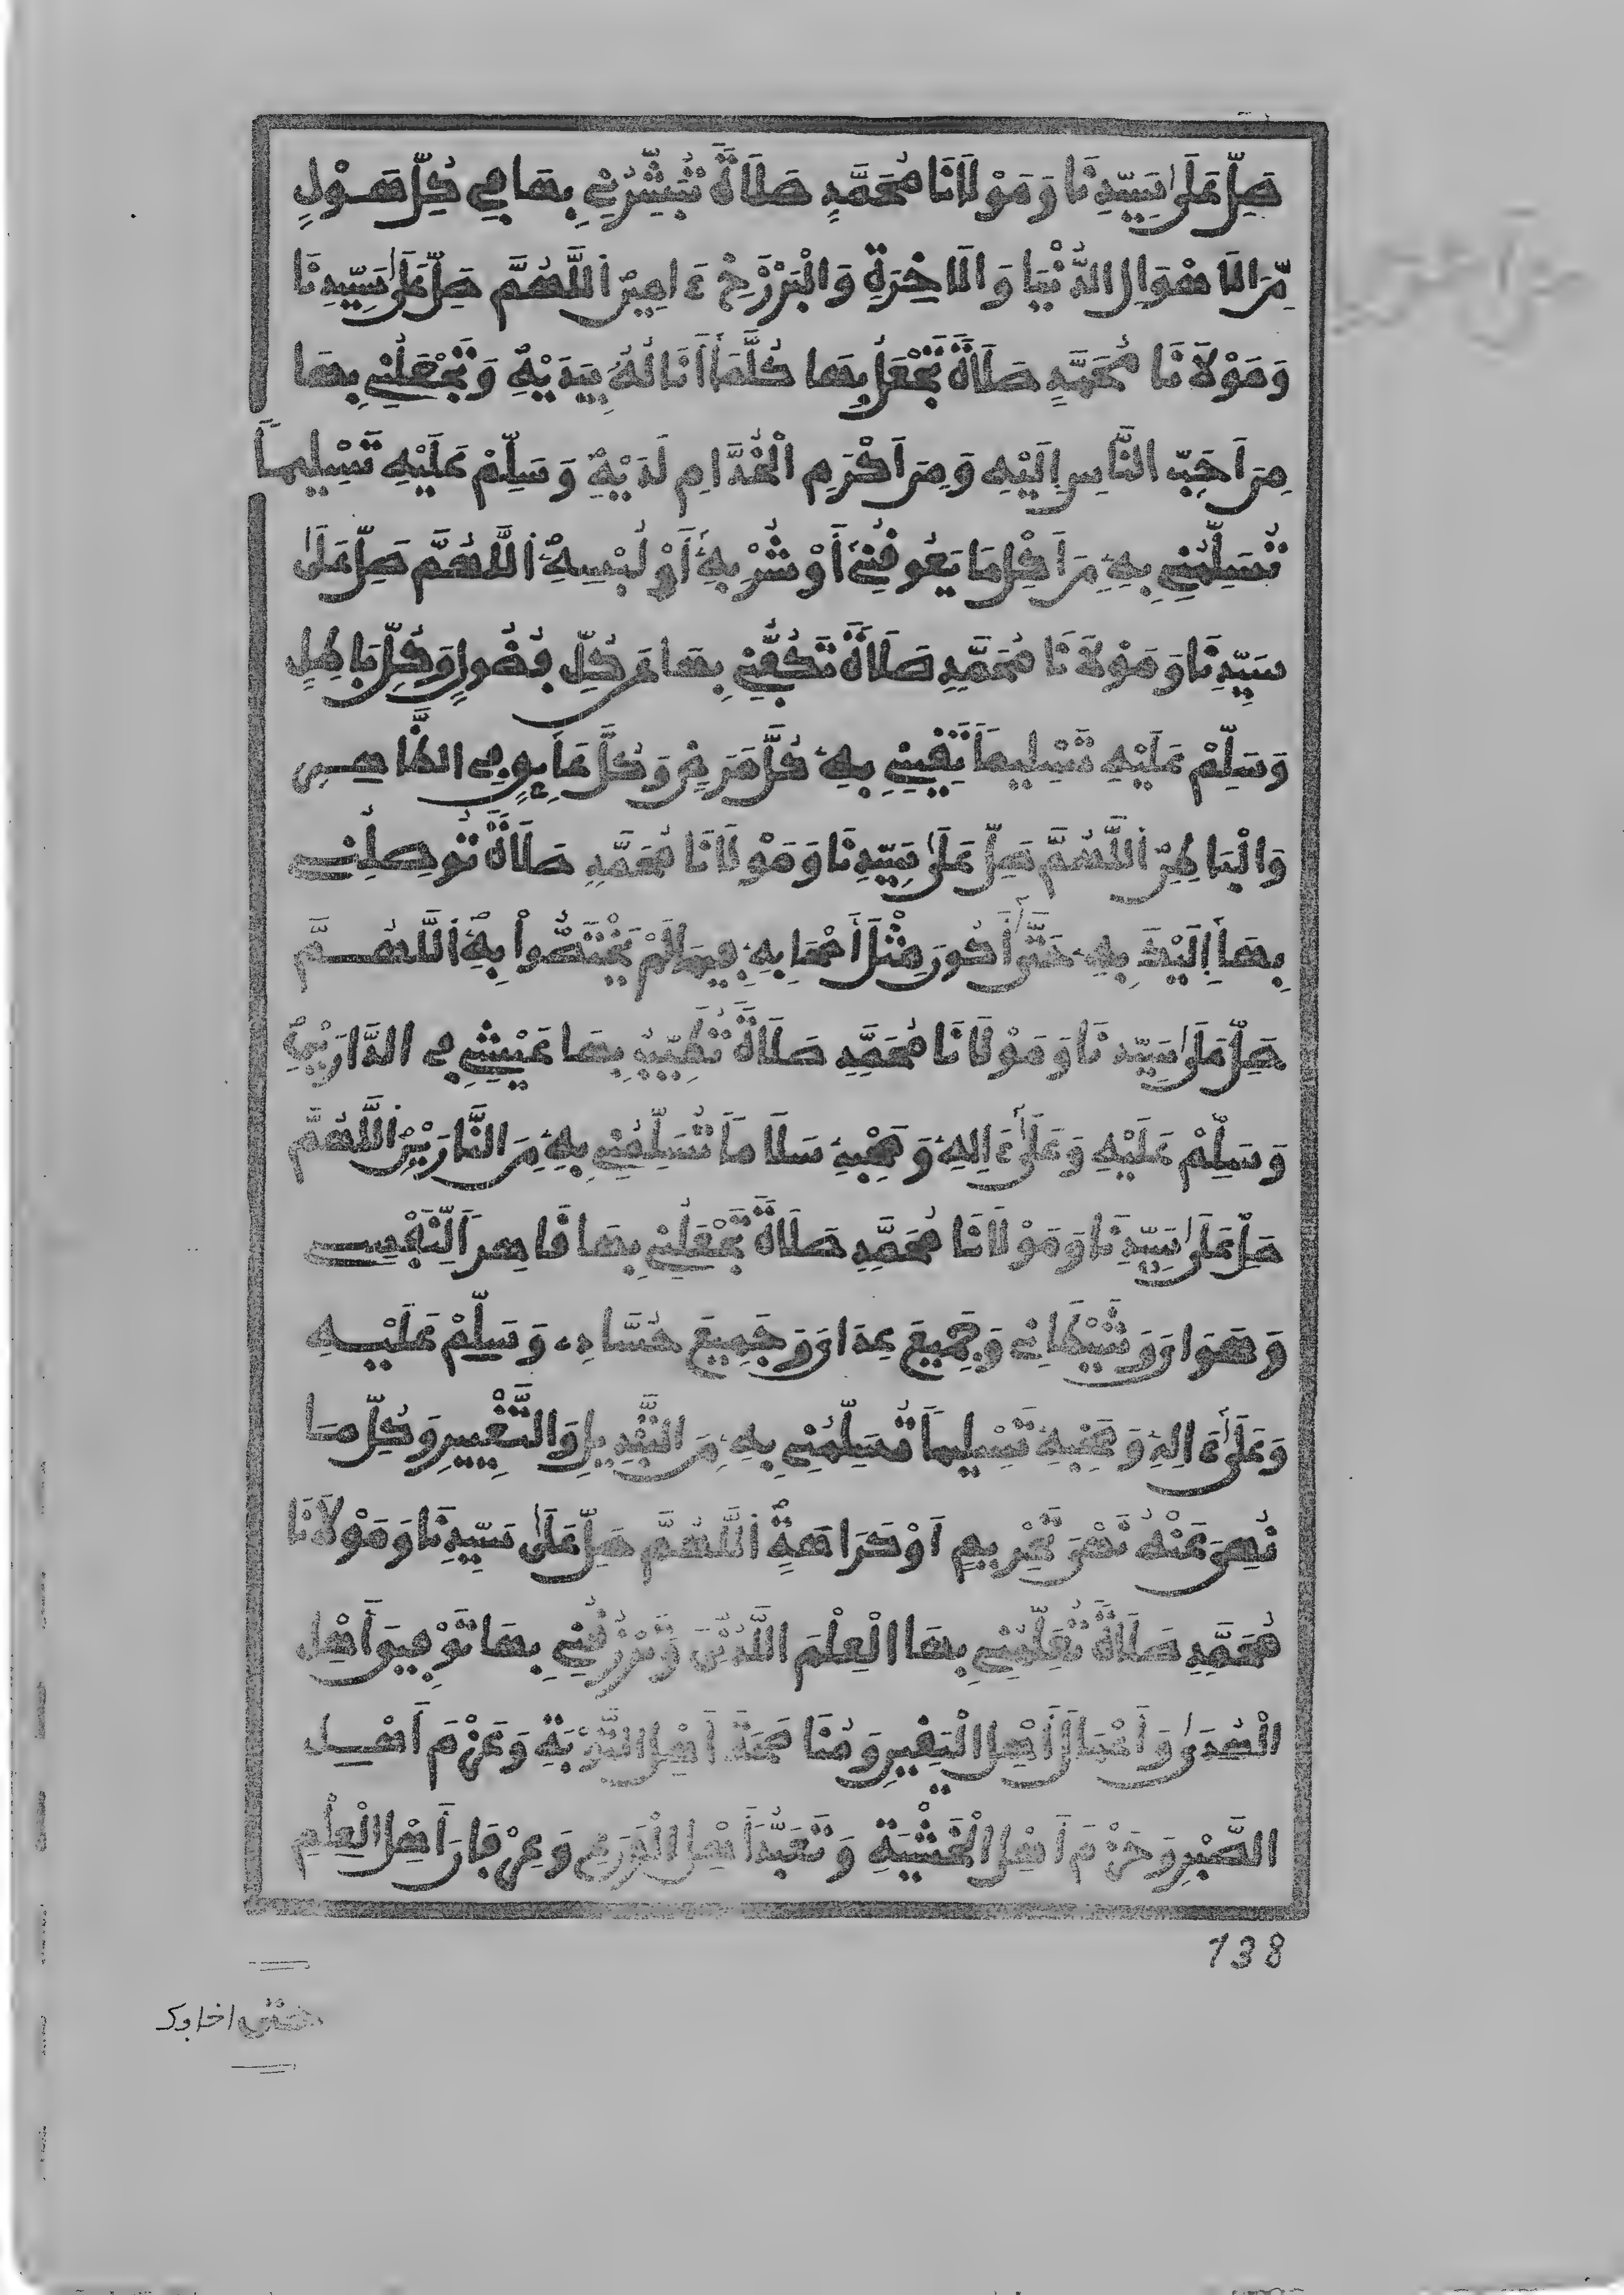 صَلِّ عَلَىٰ سَيِّدِنَا وَمَوْلَانَا مُحَمَّدٍ صَلَاةً تُبَشِّرُنِي بِهَا فِي كُلِّ هَوْلٍ
مِّنَ الَاهْوَالِ الدُّنْيَا وَالَاخِرَةِ وَالْبَرْزَخِ ءَامِينَ اَللَّهُمَّ صَلِّ عَلَىٰ سَيِّدِنَا
وَمَوْلَانَا مُحَمَّدٍ صَلَاةً تَجْعَلُ بِهَا كُلَّمَا أَنَالُهُ بِيَدَيْهِ وَتَجْعَلُنِي بِهَا
مِنَ اَحَبِّ النَّاسِ إِلَيْهِ وَمِنَ اَكْرَمِ الْخُدَّامِ لَدَيْهِ وَسَلِّمْ عَلَيْهِ تَسْلِيماً
تُسَلِّمُنِي بِهِ مِنَ اَكْلِ مَا يَعُوقُنِي أَوْ شُرْبِهِ أَوْ لُبْسِهِ اَللَّهُمَّ صَلِّ عَلَىٰ
سَيِّدِنَا وَمَوْلَانَا مُحَمَّدٍ صَلَاةً تَكُفُّنِي بِهَا عَن كُلِّ فُضُولٍ وَكُلِّ بَاطِلٍ
وَسَلِّمْ عَلَيْهِ تَسْلِيماً تَقِينِي بِهِ كُلَّ مَرَضٍ وَكُلَّ عَائِقٍ فِي الظَّاهِرِ
وَالْبَاطِنِ اَللَّهُمَّ صَلِّ عَلَىٰ سَيِّدِنَا وَمَوْلَانَا مُحَمَّدٍ صَلَاةً تُوصِلُنِي
بِهَا إِلَيْكَ بِهِ حَتَّىٰ أَكُونَ مِثْلَ أَصْحَابِهِ فِيمَا لَمْ يَخْتَصُّواْ بِهِ اَللَّهُمَّ
صَلِّ عَلَىٰ سَيِّدِنَا وَمَوْلَانَا مُحَمَّدٍ صَلَاةً تُطَيِّبُ بِهَا عَيْشِي فِي الدَّارَيْنِ
وَسَلِّمْ عَلَيْهِ وَعَلَىٰ ءَالِهِ وَصَحْبِهِ سَلَاماً تُسَلِّمُنِي بِهِ مِنَ النَّارَيْنِ اَللَّهُمَّ
صَلِّ عَلَىٰ سَيِّدِنَا وَمَوْلَانَا مُحَمَّدٍ صَلَاةً تَجْعَلُنِي بِهَا قَاهِراً لِّنَفْسِي
وَهَوَايَ وَشَيْطَانِي وَجَمِيعِ عِدَايَ وَجَمِيعِ حُسَّادِي وَسَلِّمْ عَلَيْهِ
وَعَلَىٰ ءَالِهِ وَصَحْبِهِ تَسْلِيماً تُسَلِّمُنِي بِهِ مِنَ التَّبْدِيلِ وَالتَّغْيِيرِ وَكُلِّ مَا
نُهِيَ عَنْهُ نَهْيَ تَحْرِيمٍ اَوْ كَرَاهَةٍ اَللَّهُمَّ صَلِّ عَلَىٰ سَيِّدِنَا وَمَوْلَانَا
مُحَمَّدٍ صَلَاةً تُعَلِّمُنِي بِهَا الْعِلْمَ اللَّدُنِّيَّ وَتَرْزُقُنِي بِهَا تَوْفِيقَ أَهْلِ
الْهُدَىٰ وَأَعْمَالَ أَهْلِ الْيَقِينِ وَمُنَاصَحَةَ اَهْلِ التَّوْبَةِ وَعَزْمَ اَهْلِ
الصَّبْرِ وَحَزْمَ اَهْلِ الْخَشْيَةِ وَتَعَبُّدَ أَهْلِ الْوَرَعِ وَعِرْفَانَ أَهْلِ الْعِلْمِ
138